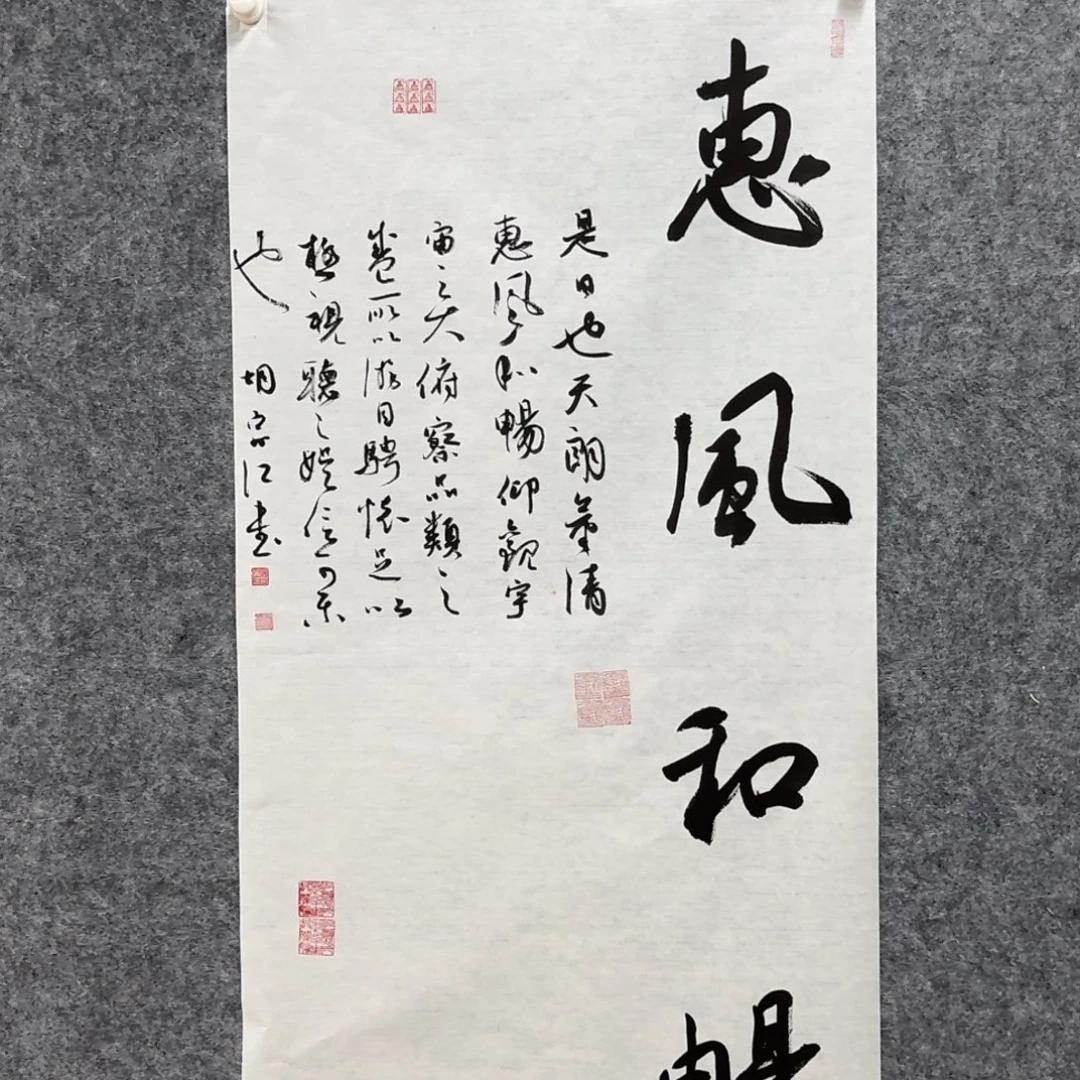 惠風和暢
是日也天朗氣清
惠風和暢仰觀宇
宙之大俯察品類之
盛所以游目騁懷足以
極視聽之娛信可樂
也 胡 江書